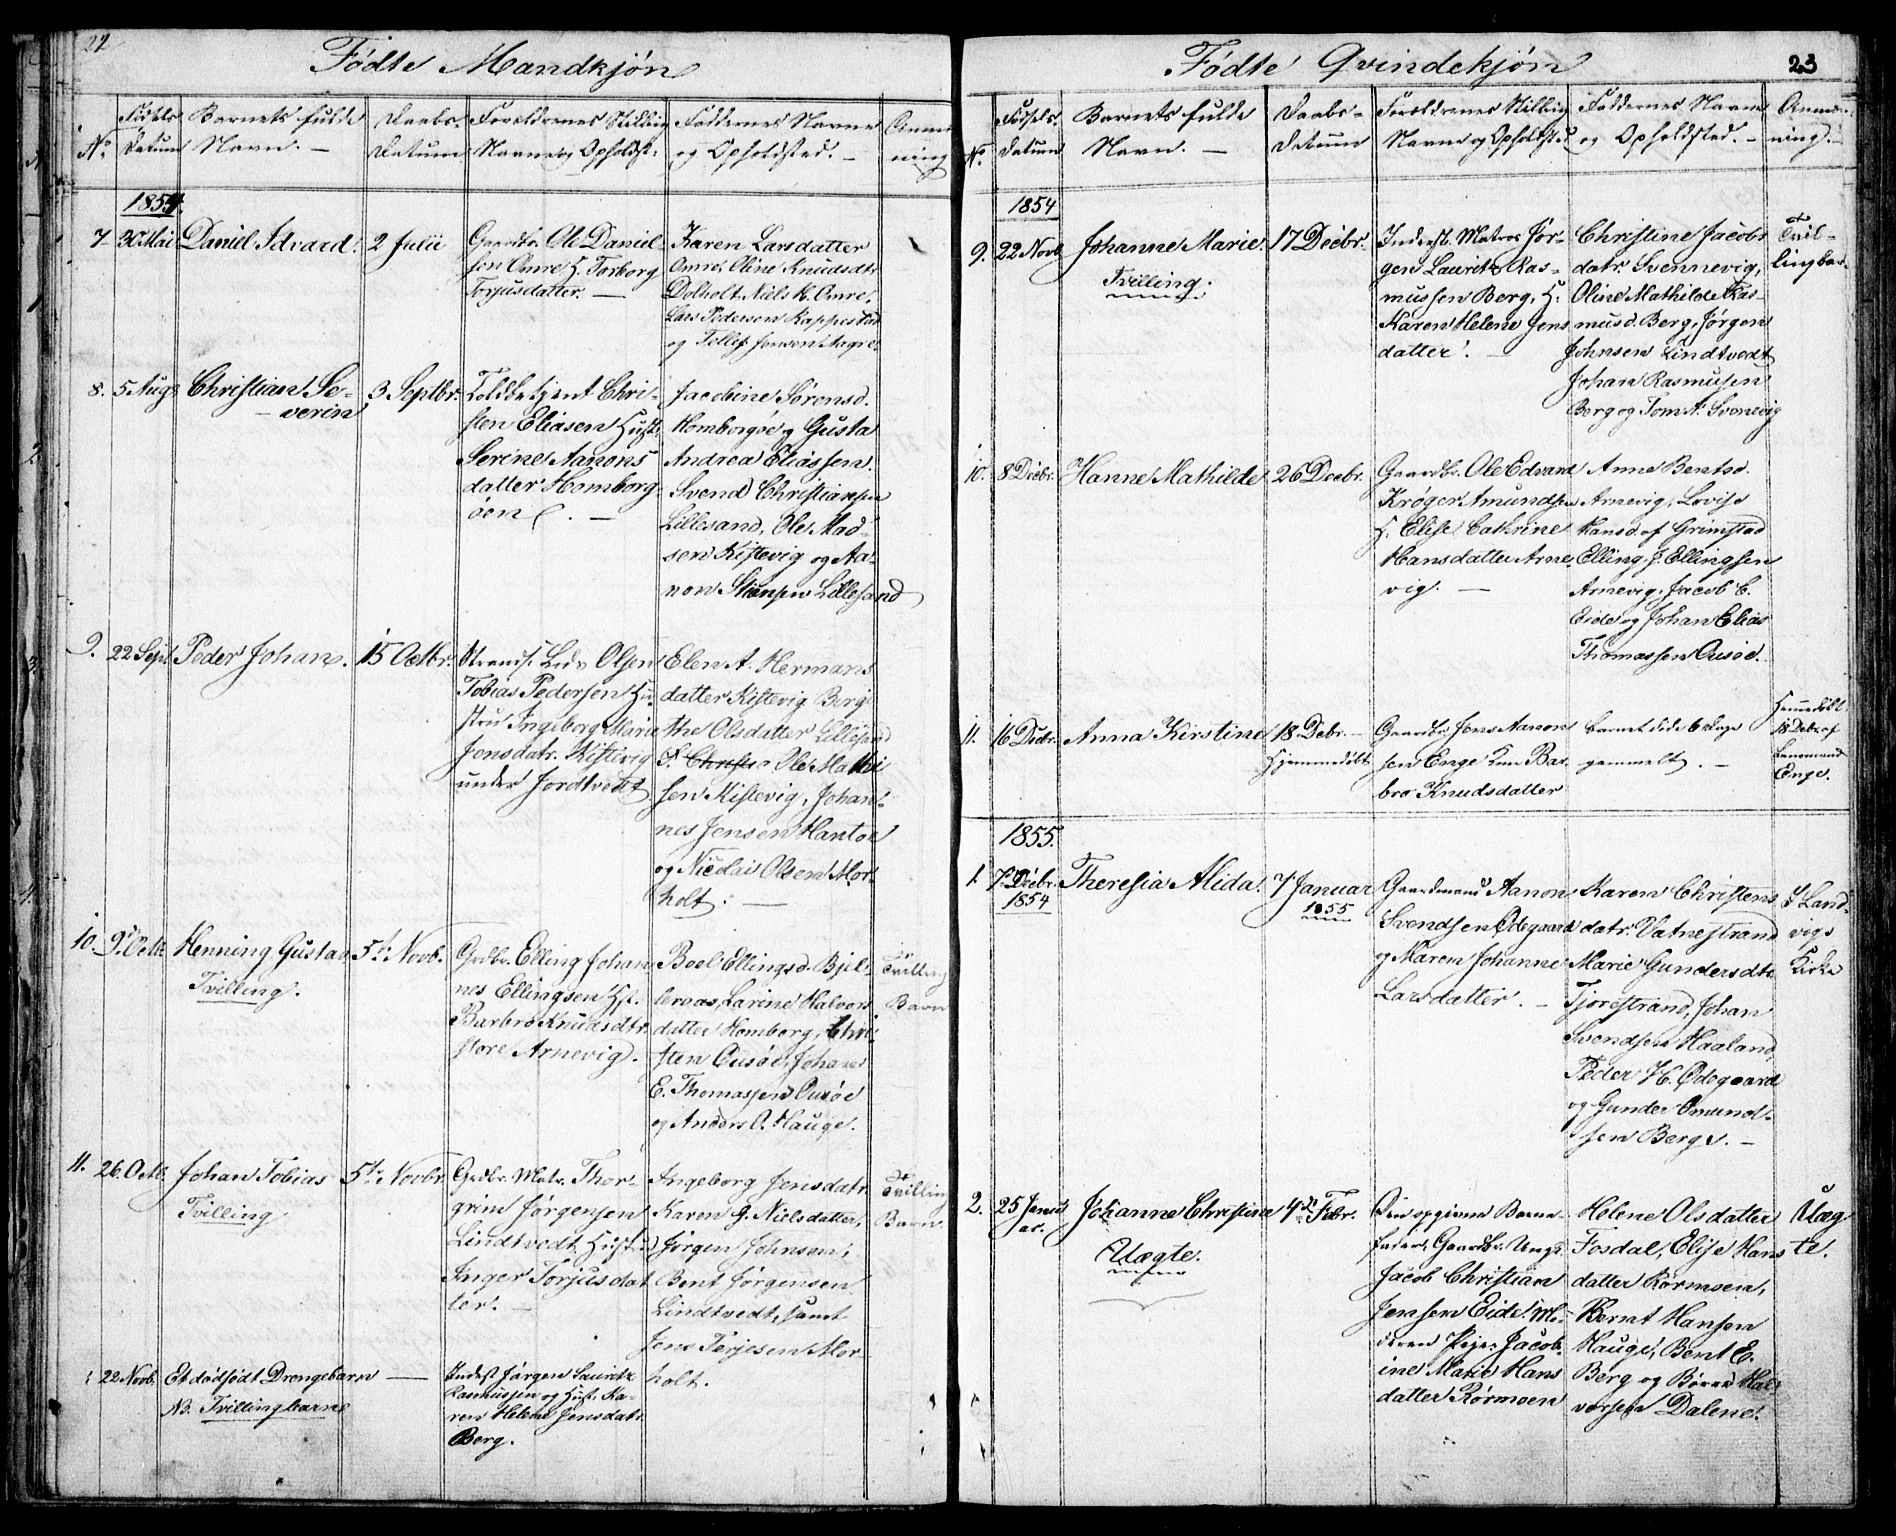 22
Fødte Mandkjøn
No.
Fødsels-
Datum
Barnets fulde
Navn. —
Daabs-
Datum
Forældrenes Stilling
Navne og Opholdst:
Faddernes Navne
og Opholdsted. —
Anmær-
ning
1854.
7
30 Mai
Daniel Edvard.
2 Julii
Gaardbr. Ole Daniel-
sen Omre H. Torborg
Torjusdatter. —
Karen Larsdatter
Omre, Oline Knudsdtr
Dolholt, Niels K. Omre,
Lars Pedersen Kappestad
og Tellef Jensen Aagre.
8.
5 Aug.
Christian Se-
verin
3 Septbr.
Toldbetjent Chri-
sten Eliasen Hust.
Serine Aanons
datter Homborg-
øen. —
Jacobine Sørensd.
Homborgøe og Gusta
Andrea Eliassen.
Svend Christiansen
Lillesand, Ole Mad-
sen Kistevig og Aa-
non Lillesand
9.
22 Sept.
Peder Johan.
15 Octbr.
Strands. Leds. Olsen
Tobias Pedersen Hu-
stru Ingeborg Marie
Jensdatr. Kistevig
under Jordtvedt
Elen A. Hermans
datter Kistevig Berg-
the Olsdatter Lillesand
Ole Mathi
sen Kistevig, Johan-
nes Jensen Hantoe
og Nicolai Olsen Mor-
holt. —
10.
9de Octb.
Henning Gustav
Tvilling.
5te Novb.
Grdbr. Elling Johan
nes Ellingsen Hst.
Barbro Knudsdtr.
store Arnevig.
Boel Ellingsd. Bjel-
leraas, Larine Halvors
datter Homborg, Chri-
sten Ousøe, Johan
E. Thomassen Ousøe
og Anders O. Hauge.
Tvilling
Barn
11.
26 Octb.
Johan Tobias
Tvilling
5te Novbr.
Grdbr. Matr. Thor-
grim Jørgensen
Lindtvedt, Hustr.
Inger Torjusdat
ter. —
Ingeborg Jensdatr.
Karen G. Nielsdatter,
Jørgen Johnsen,
Bent Jørgensen
Lindtvedt, samt
Jens Terjesen Mor-
holt.
Tvilling
Barn.
22 Novb.
Et dødfødt Drengebarn
NB. Tvillingbarn
—
Inderst Jørgen Lauritz
Rasmussen og Hust. Ka-
ren Helene Jensdatr.
Berg.
Fødte Qvindekjøn
23
No.
Fødsels-
Datum
Barnets fulde
Navn. —
Daabs-
Datum
Forældrenes Stilling
Navne og Opholdst.
Faddernes Navne
og Opholdsted. —
Anmær-
ning. —
1854
9.
22 Novb
Johanne Marie.
Tvilling.
17 Decbr.
Inderst. Matros Jør-
gen Lauritz Ras-
mussen Berg, H.
Karen Helene Jens
datter. —
Christine Jacobs
datr. Svennevig,
Oline Mathilde Ras-
musd. Berg, Jørgen
Johnsen Lindtvedt
Johan Rasmusen
Berg og Tom N. Svenevig
Tvil-
lingbar-
10.
8 Decbr.
Hanne Mathilde
26 Decbr.
Gaardbr. Ole Edvard
Krøger Amundsen
H. Elise Cathrine
Hansdatter Arne-
vig. —
Anne Bentsd.
Arnevig, Lovise
Hansd. af Grimstad
Elling J. Ellingsen
Arnevig, Jacob C.
Eide og Johan Elias
Thomassen Ousøe.
11.
16 Decbr.
Anna Kirstine
18 Debr. —
Hjemmedøbt
Gaardbr. Jens Aanon
sen Enge Kone Bar-
bro Knudsdatter
barnet døde 6 dage
gammelt. —
Hjemmedøbt
18 Debr. af
Lensmand
Enge.
1855.
1.
7de Decbr.
1854
Theresia Alida.
7 Januar
1855
Gaardmand Aanon
Svendsen Ødegaard
og Maren Johanne
Larsdatter. —
Karen Christens
datr. Vatnestrand
Marie Gundersdtr
Tjorestrand, Johan
Svendsen Haaland,
Peder H. Ødegaard
og Gunder Omund-
sen Berge. —
I Land-
vigs
Kirke
2.
25 Janu-
ar.
Johanne Christine
Uægte.
4de Febr.
Den opgivne Barne-
fader, Gaardbr. Ungk.
Jacob Christian
Jensen Eide. Mo-
deren Pige Jacob-
ine Marie Hans
datter Rørmoen
Helene Olsdatter
Fosdal, Elise Hans
datter Rørmoen,
Bernt Hansen
Hauge, Bent E.
Berg og Børre Hal-
vorsen Dalene.
Uæg
te.